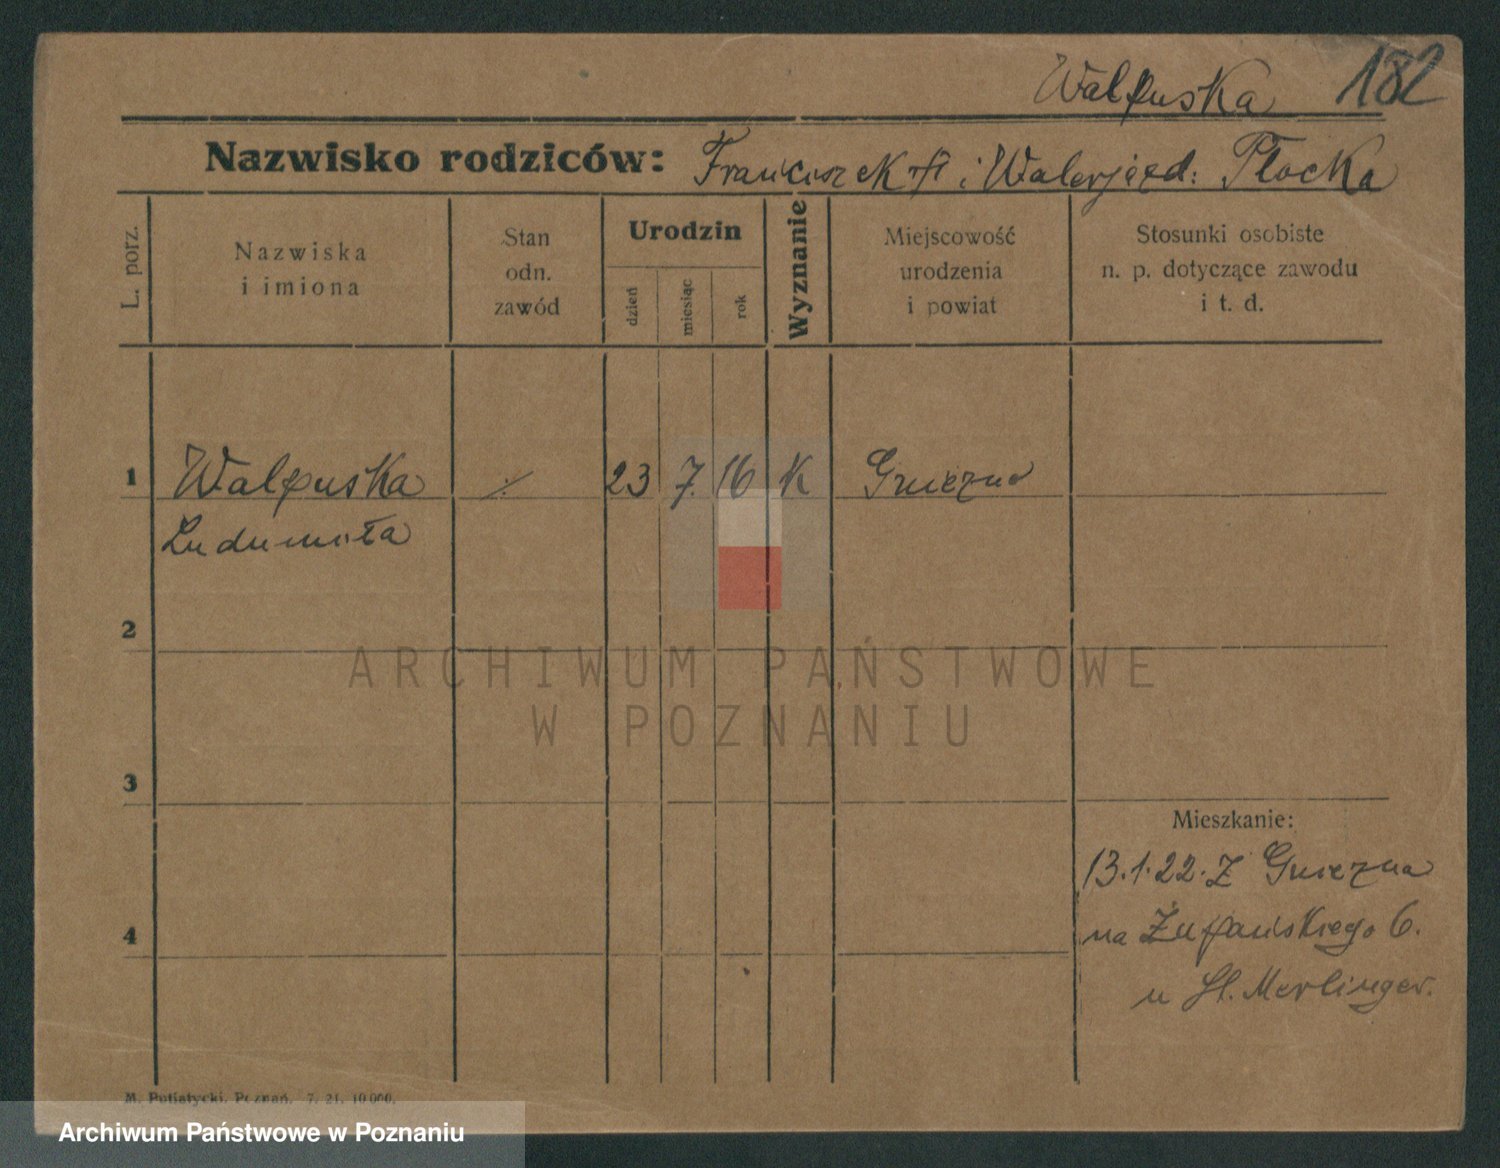 Walpuska 182
Nazwisko rodziców: Franciszek i Walerja zd: Płocka
L. porz.
Nazwiska
i imiona
Stan
odn.
zawód
Urodzin
dzień
miesiąc
rok
Wyznanie
Miejscowość
urodzenia
i powiat
Stosunki osobiste
n. p. dotyczące zawodu
i t. d.
1 Walpuska ./. 23 7. 16 K Gniezno
Ludumiła
2
ARCHIWUM PAŃSTWOWE
W POZNANIU
3
Mieszkanie:
13.1.22. Z Gniezna
4
na Żupańskiego 6.
u St. Merlinger.
M. Putiatycki, Poznań. 7. 21. 10 000.
Archiwum Państwowe w Poznaniu